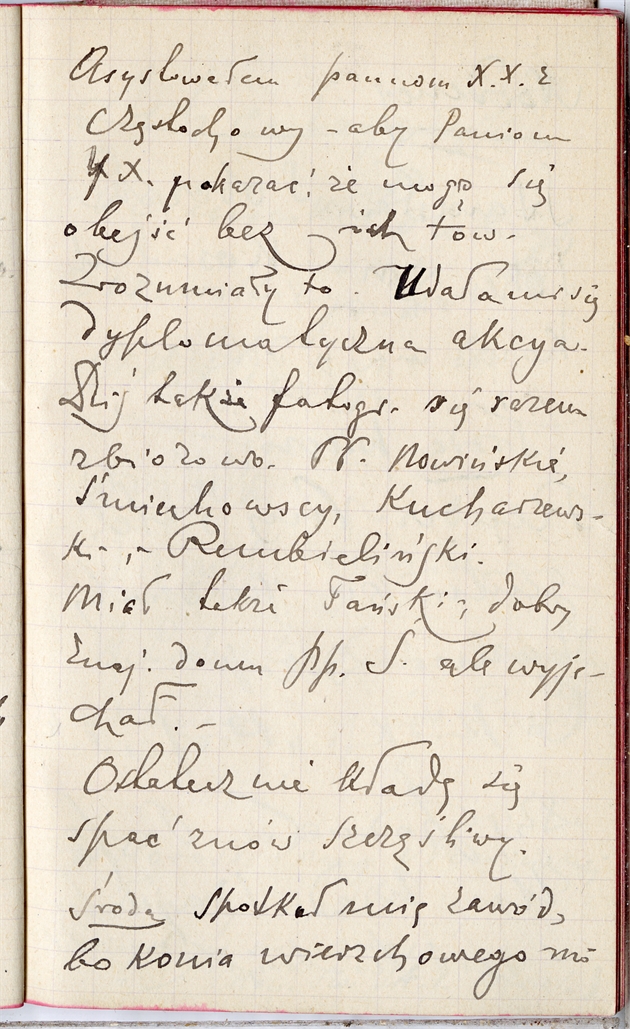 Asystowałem pannom X.X. z
Częstochowy – aby Paniom
X X. pokazać, że mogę się
obejść bez ich tów.
Zrozumiały to. Udała mi się
dyplomatyczna akcya.
Dziś także fotogr. się razem
zbiorowo. PP. Nowińskie,
Śmiechowscy, Kucharzews-
ki –, – Rembieliński.
Miał także Tański, dobry
znaj. domu pp. S. ale wyje-
chał. –
Ostatecznie kładę się
spać znów szczęśliwy.
Środa spotkał mię zawód,
bo konia wierzchowego nie